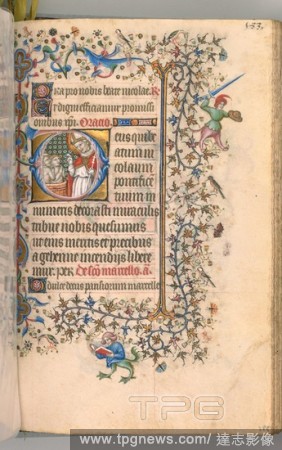 153.
Ora pro nobis beate nicolae. R
Ut digni efficiamur promissi
onibus xpi. Oratio
eus qui be
atum ni
colaum
pontifice
tuum in
numeris decorasti miraculis
tribue nobis quesumus
ut eius meritis et precibus
a gehenne incendiis libere
mur. per De sco marcello. a.
O dulce decus parisiorum marcelle
TPG
www.tpgnews.com/ 達志影像